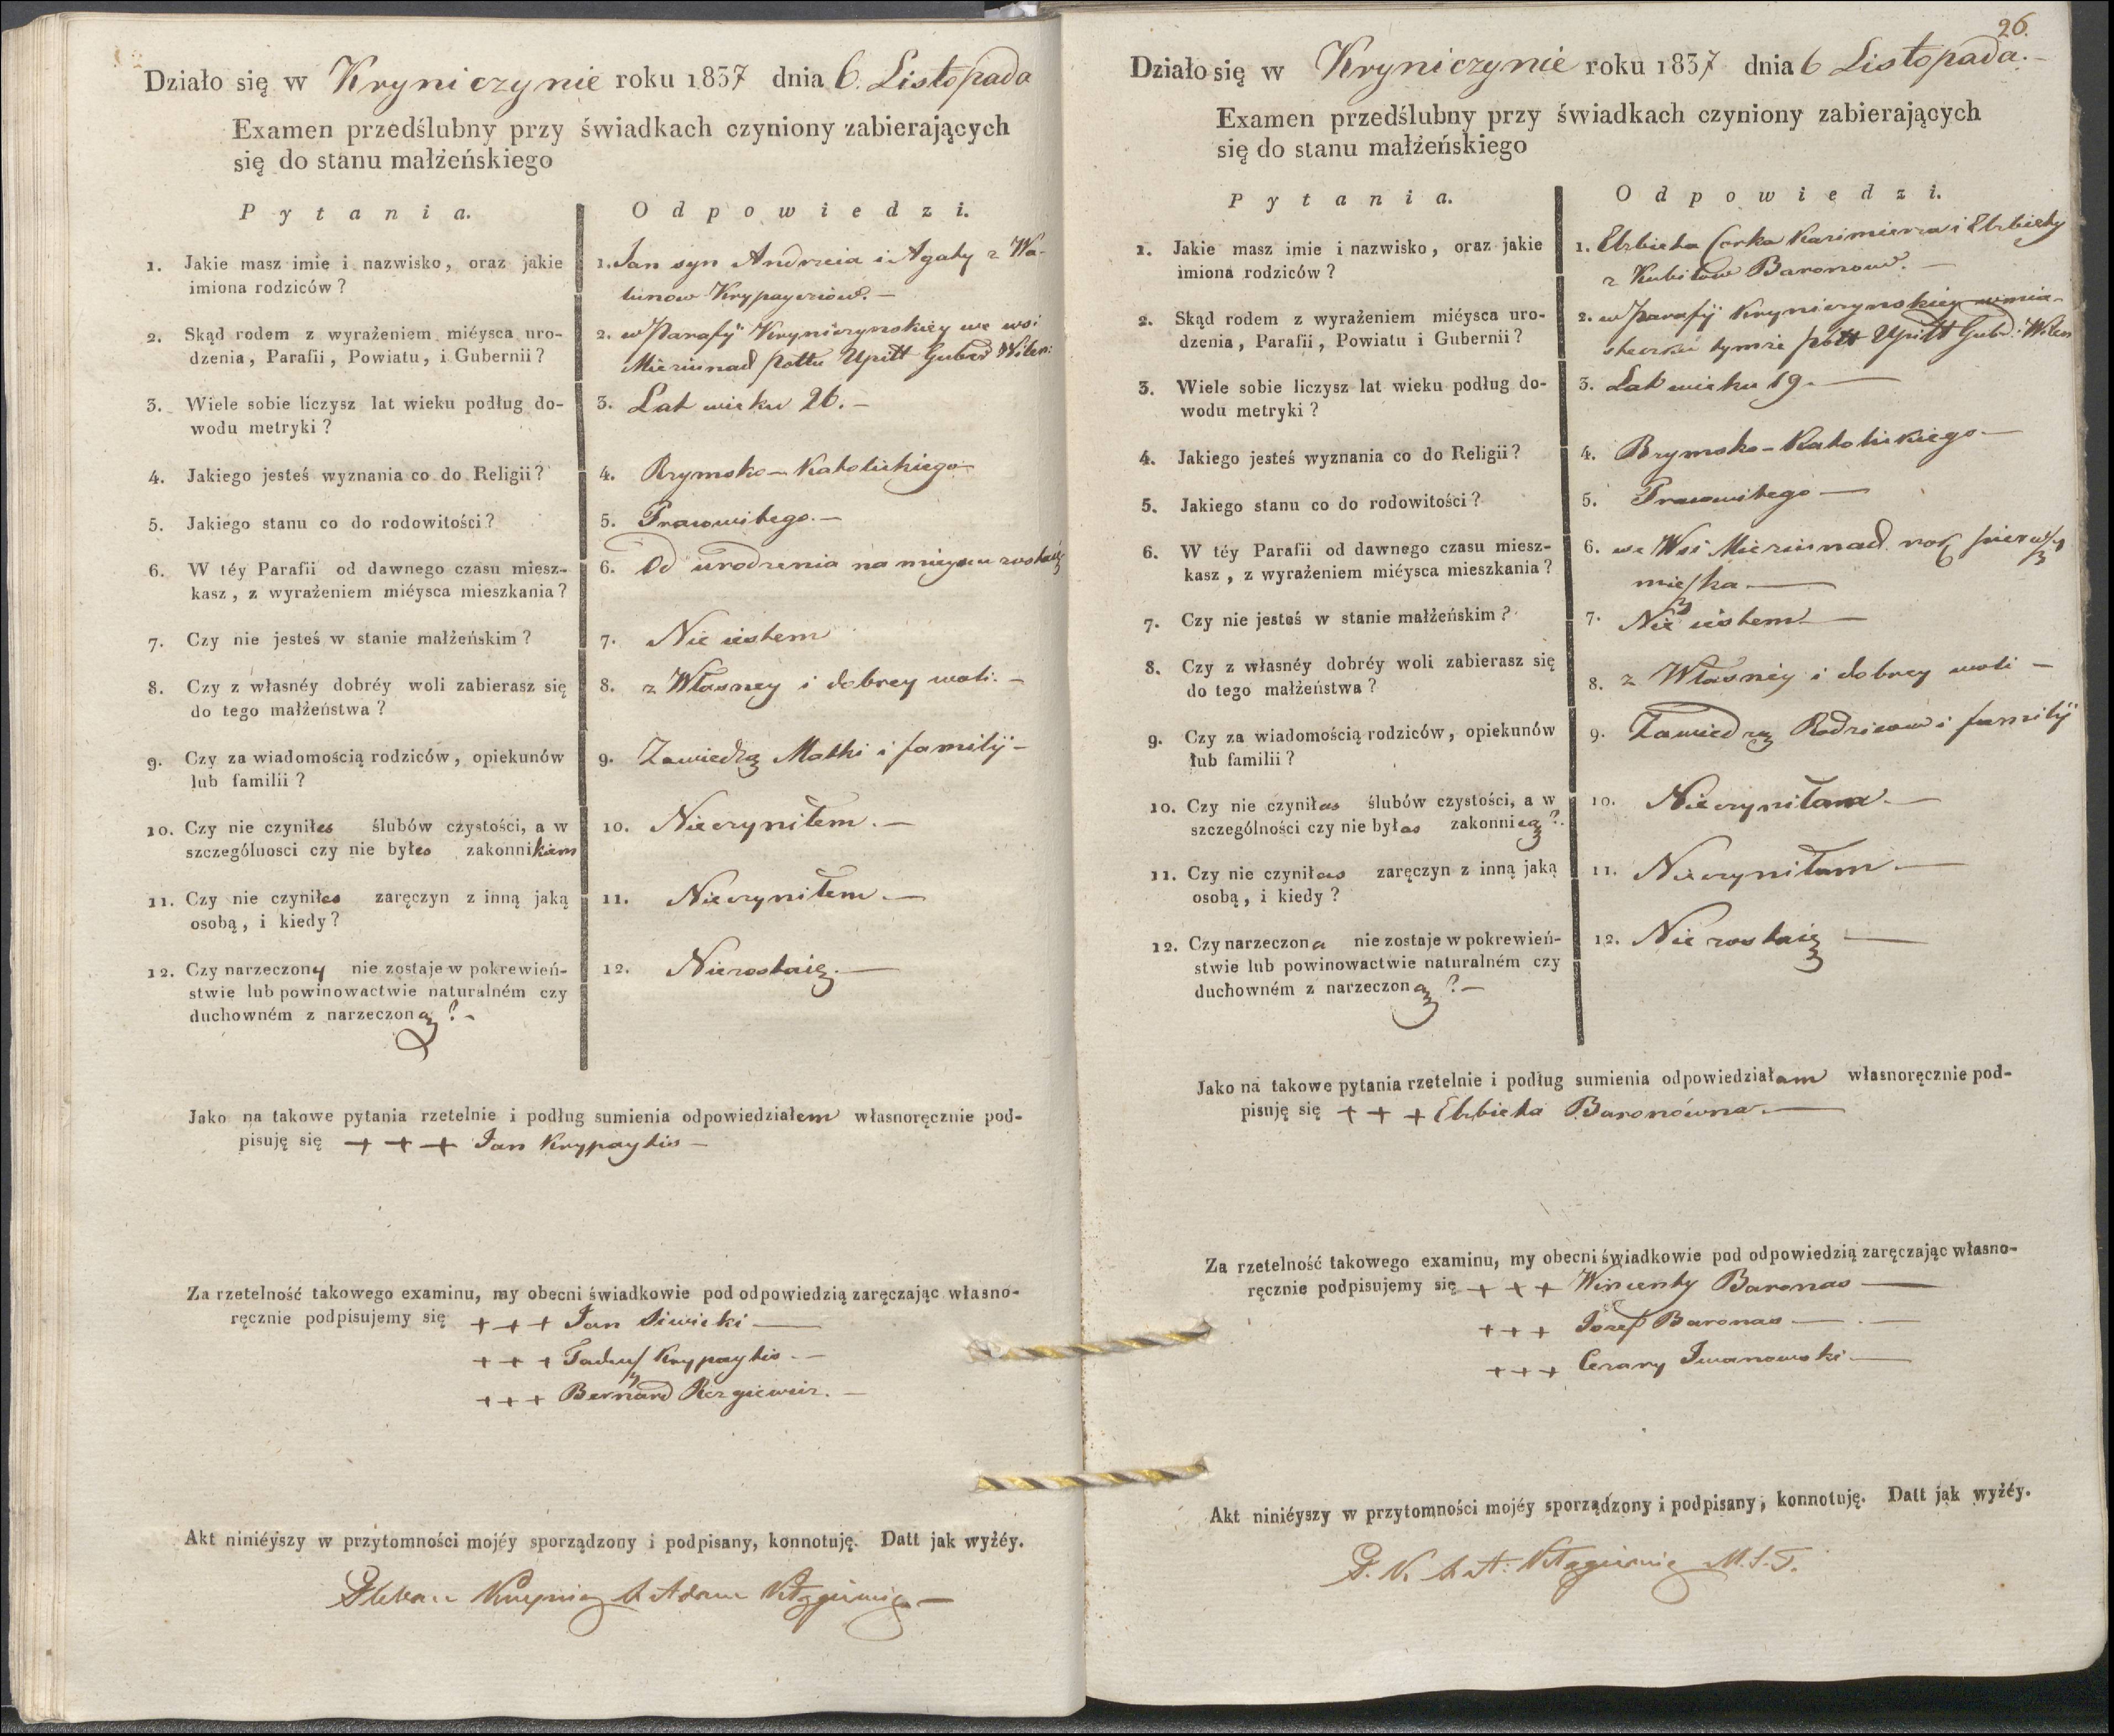 Działo się w Kryniczynie roku 1837 dnia 6. Listopada
Examen przedślubny przy świadkach czyniony zabierających
się do stanu małżeńskiego
Pytania.
Odpowiedzi.
1. Jakie masz imie i nazwisko, oraz jakie
imiona rodziców?
1. Jan syn Andrzeia i Agaty z Wa-
lunow Krypayciow. –
2. Skąd rodem z wyrażeniem miéysca uro-
dzenia, Parafii, Powiatu, i Gubernii?
2. w Parafÿ Kryniczynskiey we wsi
Mieziunad Pottu Upitt Guber Wilen:
3. Wiele sobie liczysz lat wieku podług do-
wodu metryki?
3. Lat wieku 26. –
4. Jakiego jesteś wyznania co do Religii?
4. Rzymsko – Katolickiego –
5. Jakiego stanu co do rodowitości?
5. Pracowitego. –
6. W téy Parafii od dawnego czasu miesz-
kasz, z wyrażeniem miéysca mieszkania?
6. Od urodzenia na mieyscu zostaię
7. Czy nie jesteś w stanie małżeńskim?
7. Nie iestem
8. Czy z własnéy dobréy woli zabierasz się
do tego małżeństwa?
8. z Własney i dobrey woli. –
9. Czy za wiadomością rodziców, opiekunów
lub familii?
9. Zawiedzą Matki i familÿ –
10. Czy nie czyniłes ślubów czystości, a w
szczególnosci czy nie byłes zakonnikiem
10. Nieczyniłem. –
11. Czy nie czyniłes zaręczyn z inną jaką
osobą, i kiedy?
11. Nieczyniłem –
12. Czy narzeczony nie zostaje w pokrewień-
stwie lub powinowactwie naturalném czy
duchowném z narzeczoną? –
12. Niezostaię. –
Jako na takowe pytania rzetelnie i podług sumienia odpowiedziałem własnoręcznie pod-
pisuję się + + + Jan Krypaytis –
Za rzetelność takowego examinu, my obecni świadkowie pod odpowiedzią zaręczając własno-
ręcznie podpisujemy się + + + Jan Siwicki –
+ + + Tadeusz Krypaytis. –
+ + + Bernard –
Akt niniéyszy w przytomności mojéy sporządzony i podpisany, konnotuję. Datt jak wyżéy.
Adam
26.
Działo się w Kryniczynie roku 1837 dnia 6 Listopada. –
Examen przedślubny przy świadkach czyniony zabierających
się do stanu małżeńskiego
Pytania.
Odpowiedzi.
1. Jakie masz imie i nazwisko, oraz jakie
imiona rodziców?
1. Elżbieta Corka Kazimierza i Elżbiety
z Kubilow Baronow. –
2. Skąd rodem z wyrażeniem miéysca uro-
dzenia, Parafii, Powiatu i Gubernii?
2. w Parafÿ Kryniczynskiey w mia-
steczku tymże Pott Upitt Gub: Wilen
3. Wiele sobie liczysz lat wieku podług do-
wodu metryki?
3. Lat wieku 19. –
4. Jakiego jesteś wyznania co do Religii?
4. Rzymsko – Katolickiego –
5. Jakiego stanu co do rodowitości?
5. Pracowitego –
6. W téy Parafii od dawnego czasu miesz-
kasz, z wyrażeniem miéysca mieszkania?
6. we Wsi Mieziunad rok pierwszy
mieszka –
7. Czy nie jesteś w stanie małżeńskim?
7. Nie iestem –
8. Czy z własnéy dobréy woli zabierasz się
do tego małżeństwa?
8. z Własnéy i dobrey woli –
9. Czy za wiadomością rodziców, opiekunów
lub familii?
9. Zawiedzą Rodzicow i familÿ
10. Czy nie czyniłas ślubów czystości, a w
szczególności czy nie byłas zakonnicą?
10. Nieczyniłam. –
11. Czy nie czyniłas zaręczyn z inną jaką
osobą, i kiedy?
11. Nieczyniłam –
12. Czy narzeczona nie zostaje w pokrewień-
stwie lub powinowactwie naturalném czy
duchowném z narzeczoną? –
12. Nie zostaię –
Jako na takowe pytania rzetelnie i podług sumienia odpowiedziałam własnoręcznie pod-
pisuję się + + + Elżbieta Baronówna. –
Za rzetelność takowego examinu, my obecni świadkowie pod odpowiedzią zaręczając własno-
ręcznie podpisujemy się + + + Wincenty Baronas –
+ + + Jozef Baronas –
+ + + Cezary Iwanowski –
Akt niniéyszy w przytomności mojéy sporządzony i podpisany, konnotuję. Datt jak wyżéy.
P. K. M.S.T.